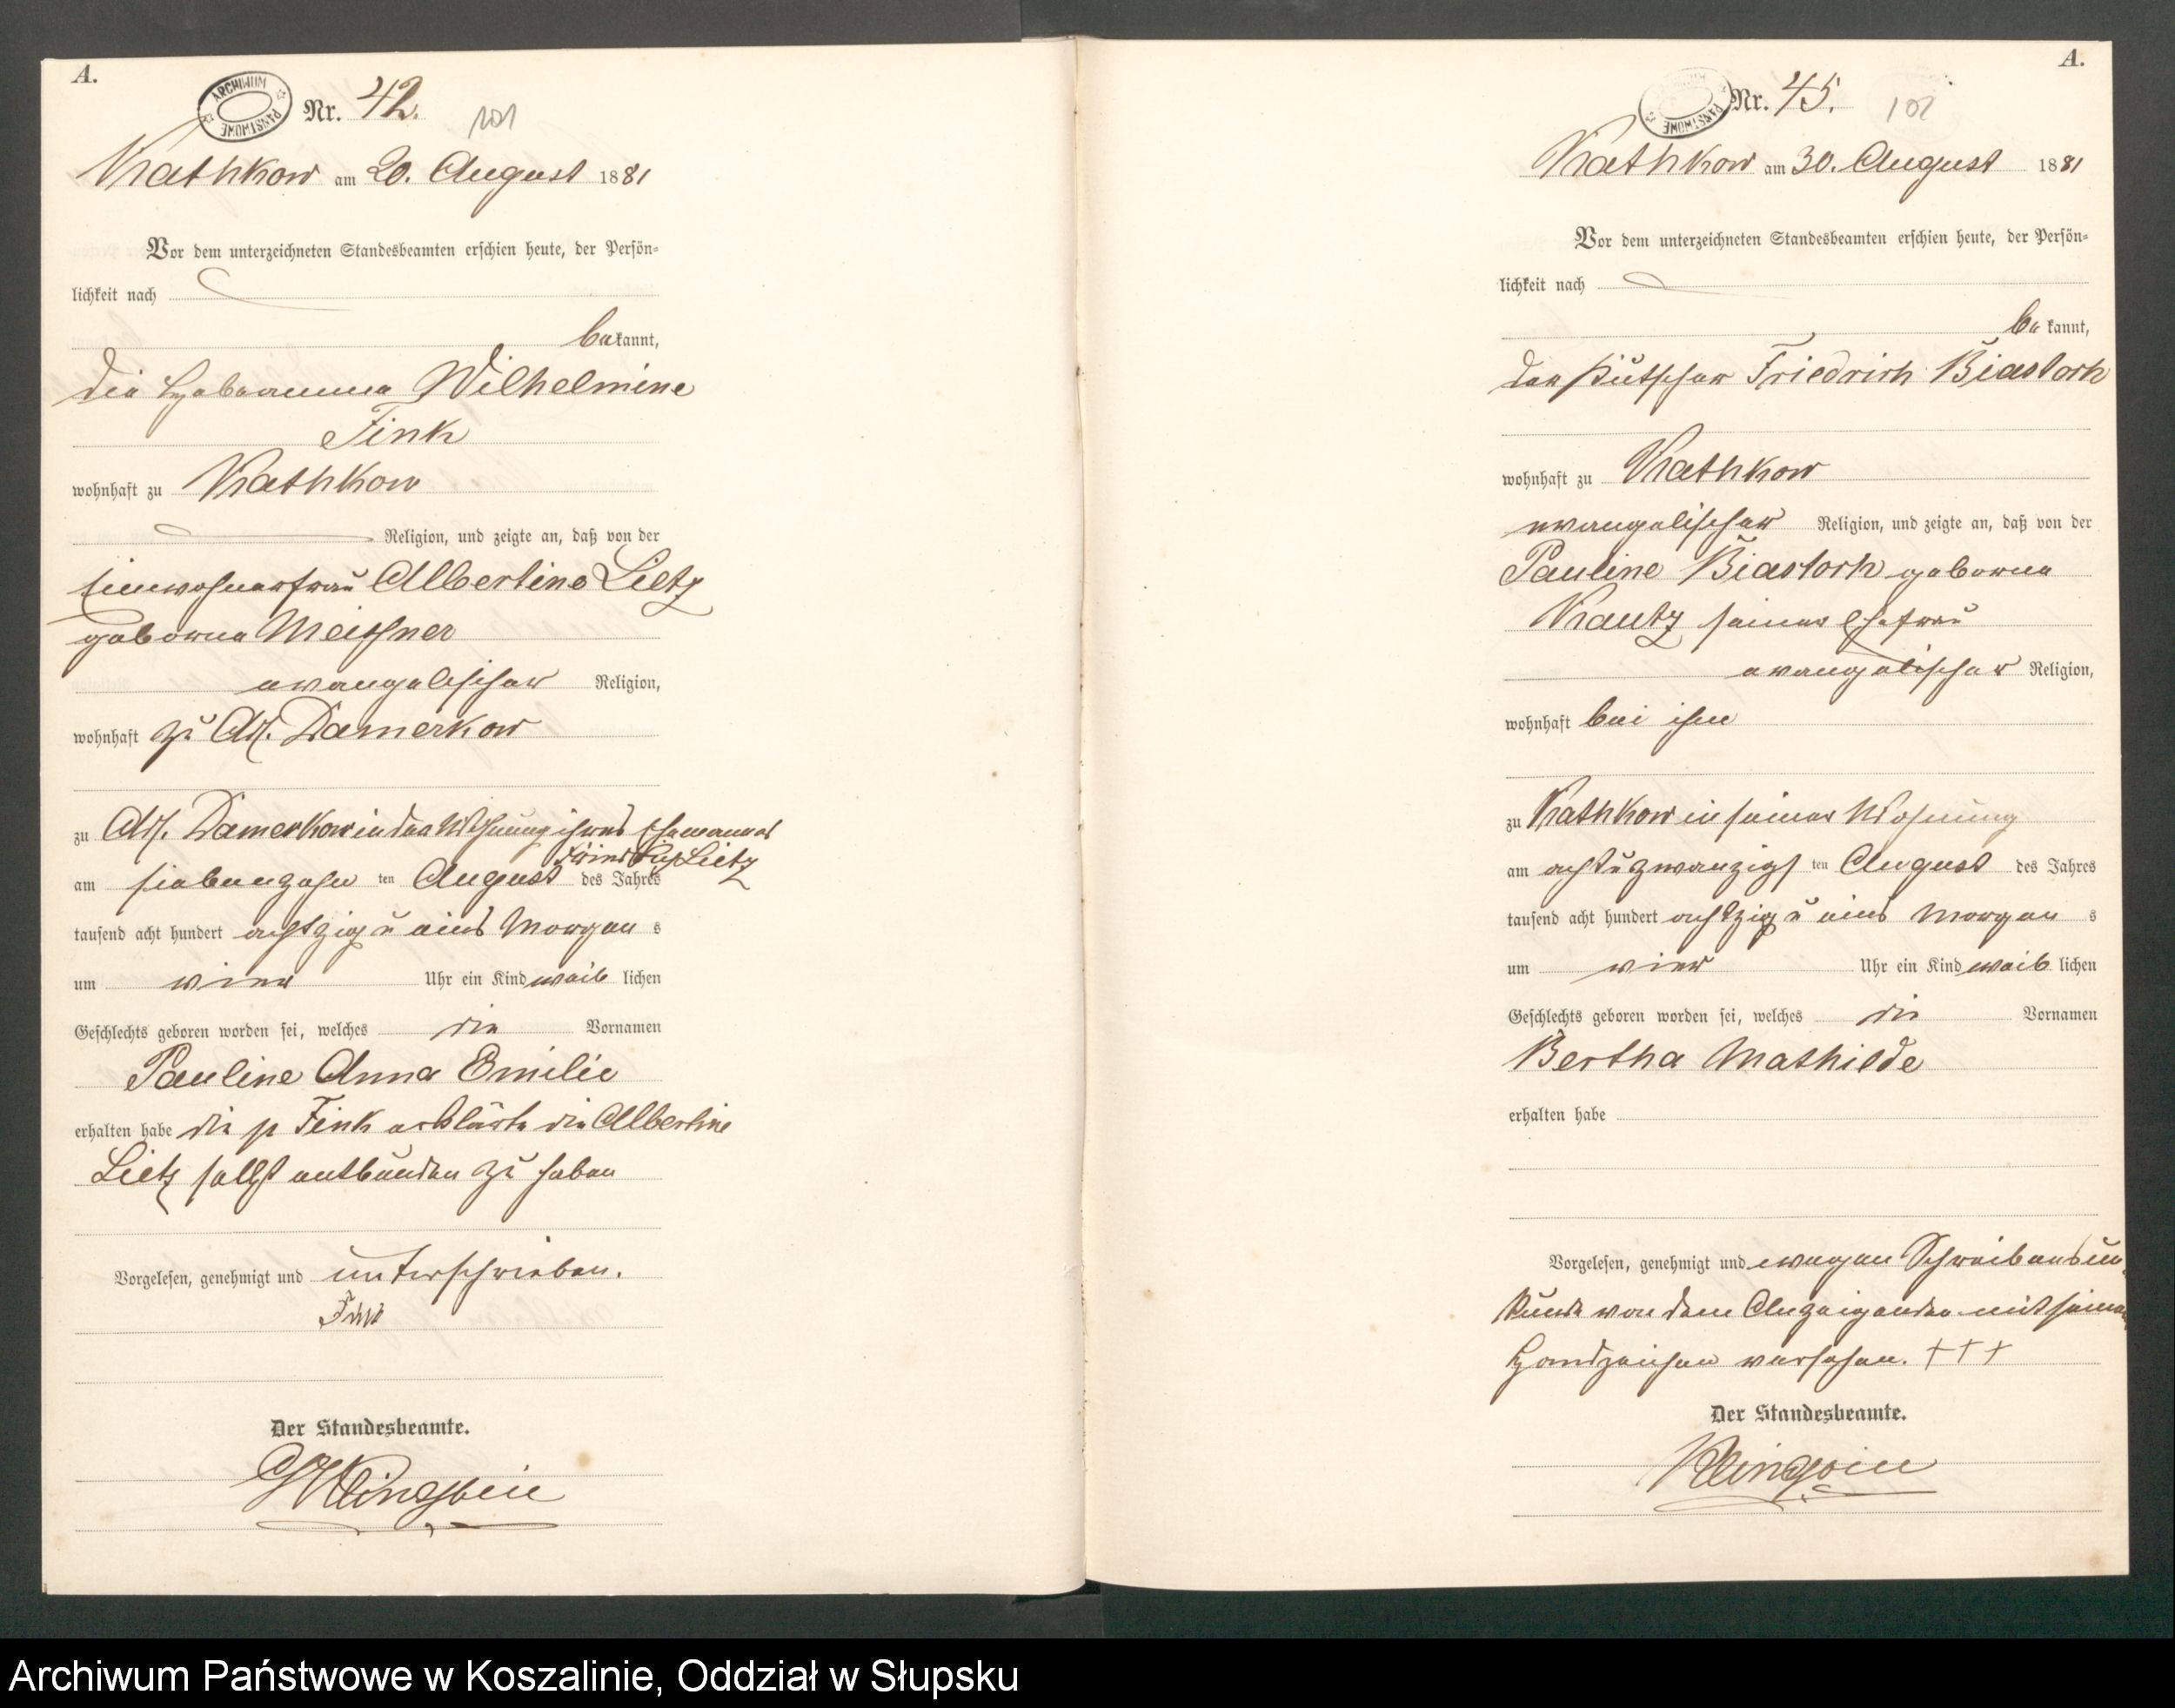 A.
ARCHIWUM PAŃSTWOWE
Nr. 42.
101
Rathkow am 20. August 1881
Vor dem unterzeichneten Standesbeamten erschien heute, der Persön-
lichkeit nach
bekannt,
die Hebeamme Wilhelmine
Fink
wohnhaft zu Rathkow
Religion, und zeigte an, daß von der
Einwohnerfrau Albertine Lietz
geborne Meißner
evangelischer Religion,
wohnhaft zu Adl. Damerkow
zu Adl. Damerkow in der Wohnung ihres Ehemannes
Lietz
am siebenzehn ten August des Jahres
tausend acht hundert achtzig u eins Morgens
um vier Uhr ein Kind weiblichen
Geschlechts geboren worden sei, welches die Vornamen
Pauline Anna Emilie
erhalten habe die p Fink erklärte die Albertine
Lietz selbst entbunden zu haben
Vorgelesen, genehmigt und unterschrieben.
Der Standesbeamte.
Klingbeil
A.
PAŃSTWOWE
Nr. 45.
102
Rathkow am 30. August 1881
Vor dem unterzeichneten Standesbeamten erschien heute, der Persön-
lichkeit nach
bekannt,
der Friedrich Biastoch
wohnhaft zu Rathkow
evangelischer Religion, und zeigte an, daß von der
Pauline Biastoch geborne
Kautz seiner Ehefrau
evangelischer Religion,
wohnhaft bei ihm
zu Rathkow in seiner Wohnung
am acht u zwanzigsten August des Jahres
tausend acht hundert achtzig u eins Morgens
um vier Uhr ein Kind weiblichen
Geschlechts geboren worden sei, welches die Vornamen
Bertha Mathilde
erhalten habe
Vorgelesen, genehmigt und wegen Schreibensun-
kunde von dem Anzeigenden mit seinem
Handzeichen versehen. +++
Der Standesbeamte.
Klingbeil
Archiwum Państwowe w Koszalinie, Oddział w Słupsku